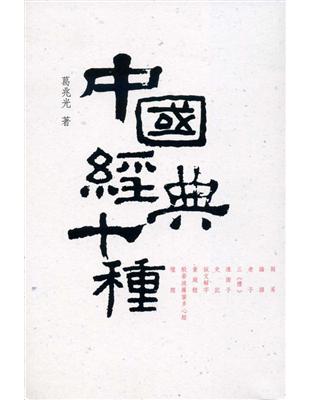 中國經典十種
葛兆光 著
周易
論語
老子
三《禮》
淮南子
史記
說文解字
黃庭經
般若波羅蜜多心經
壇經